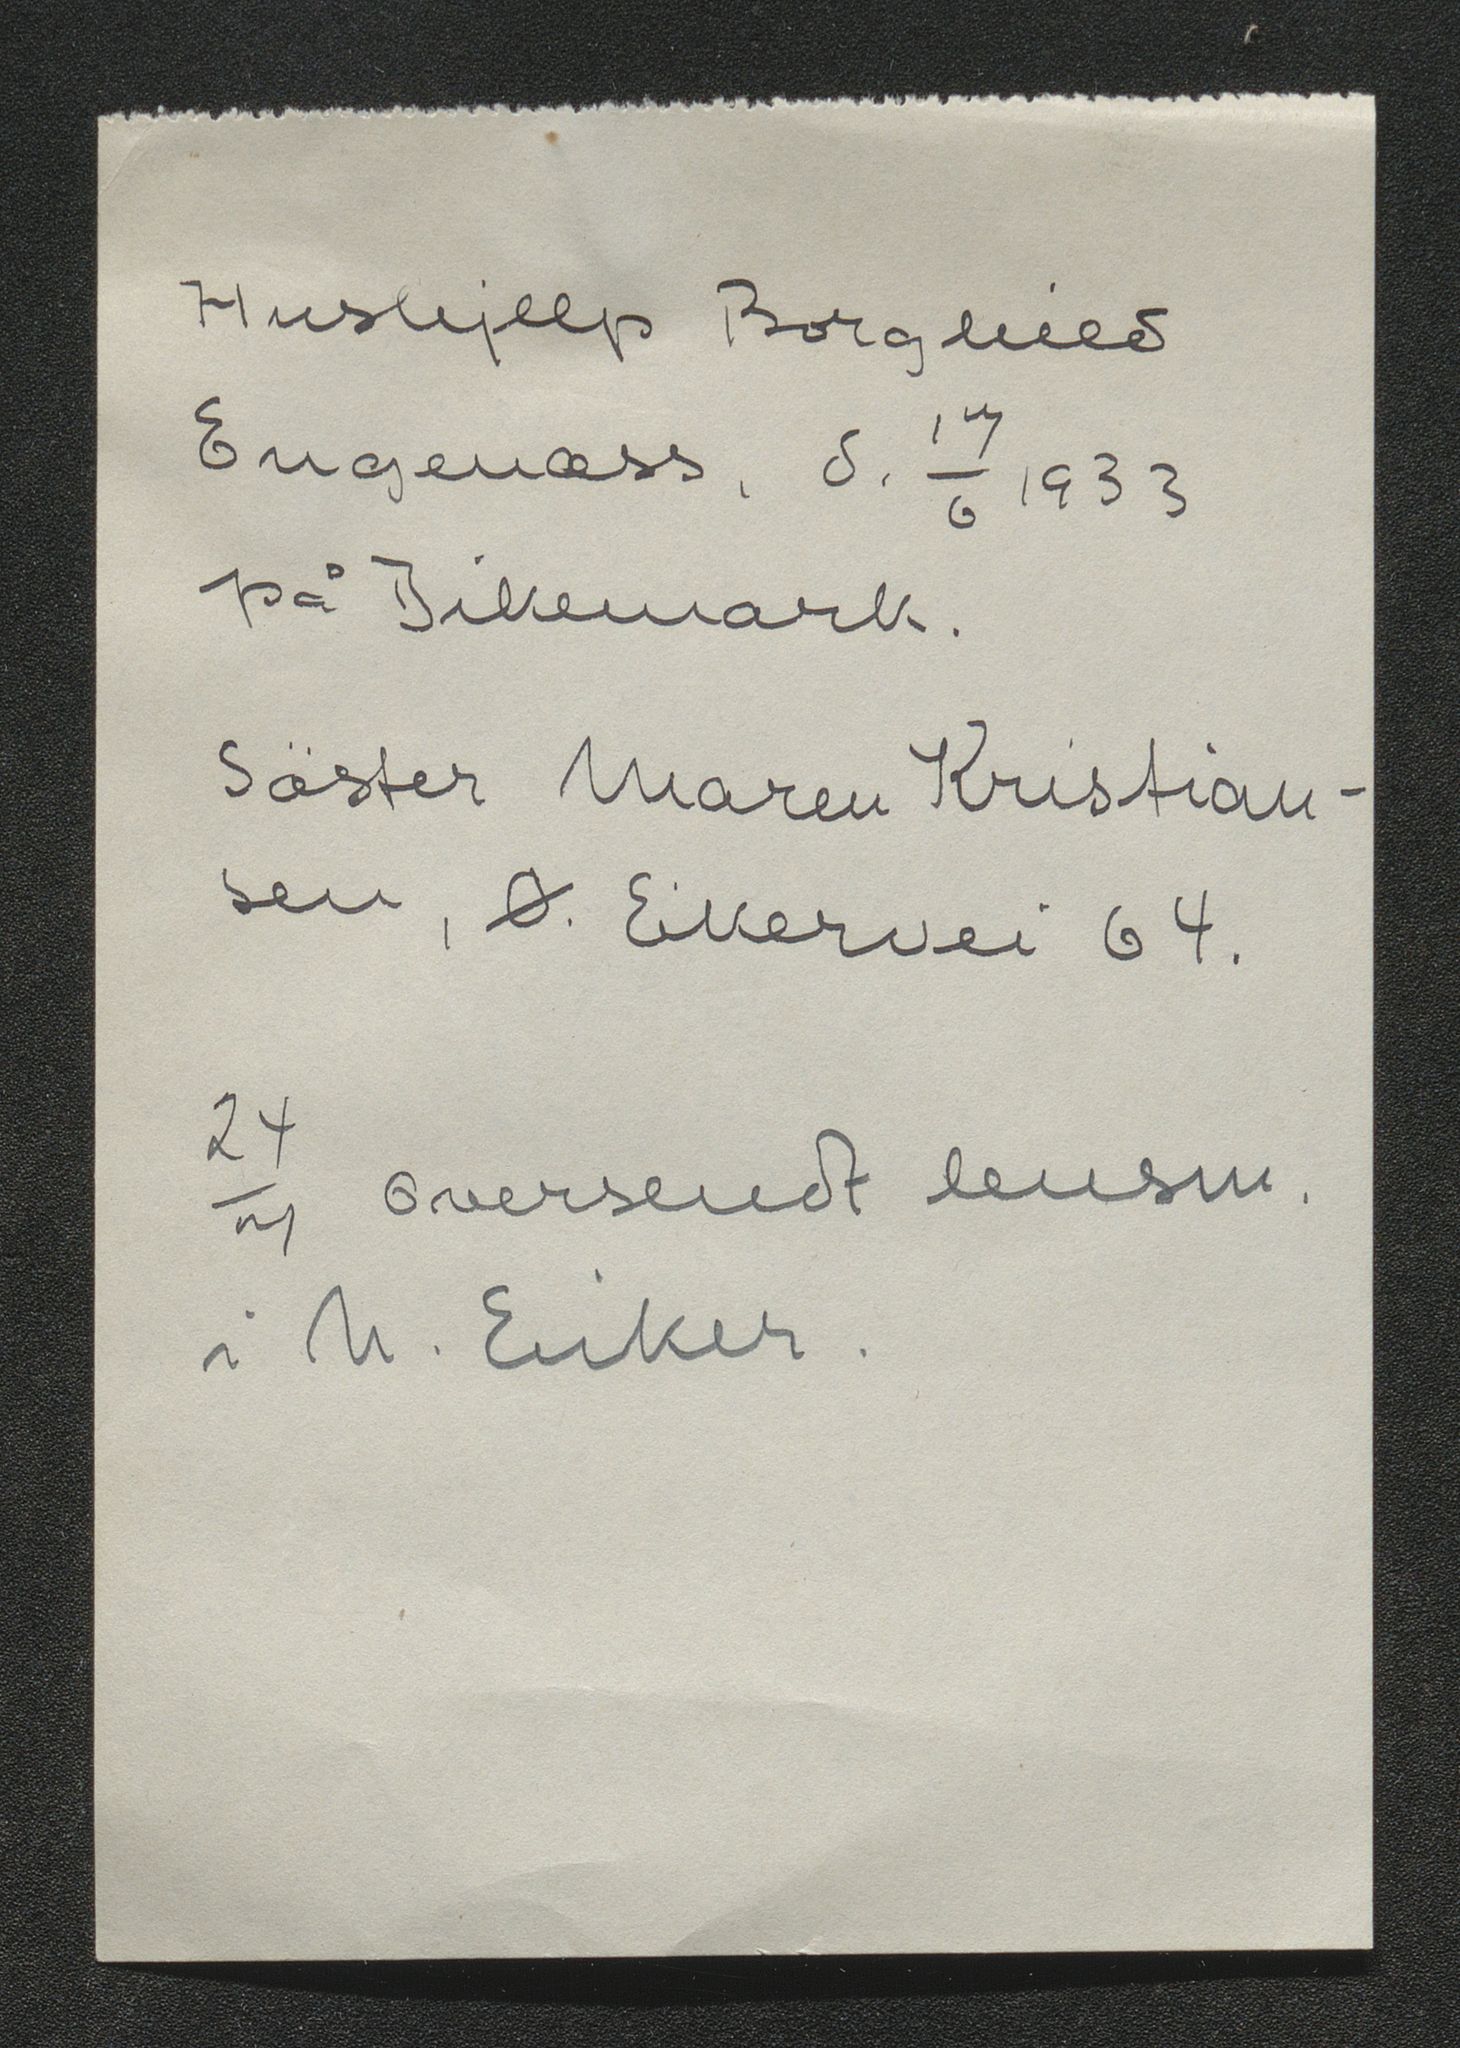 Hushjelp Borghild
Engenæss, d. 17/6 1933
på Dikemark.
Söster Maren Kristian-
sen, Ø. Eikervei 64.
24/7 oversendt lensm.
i N. Eiker.